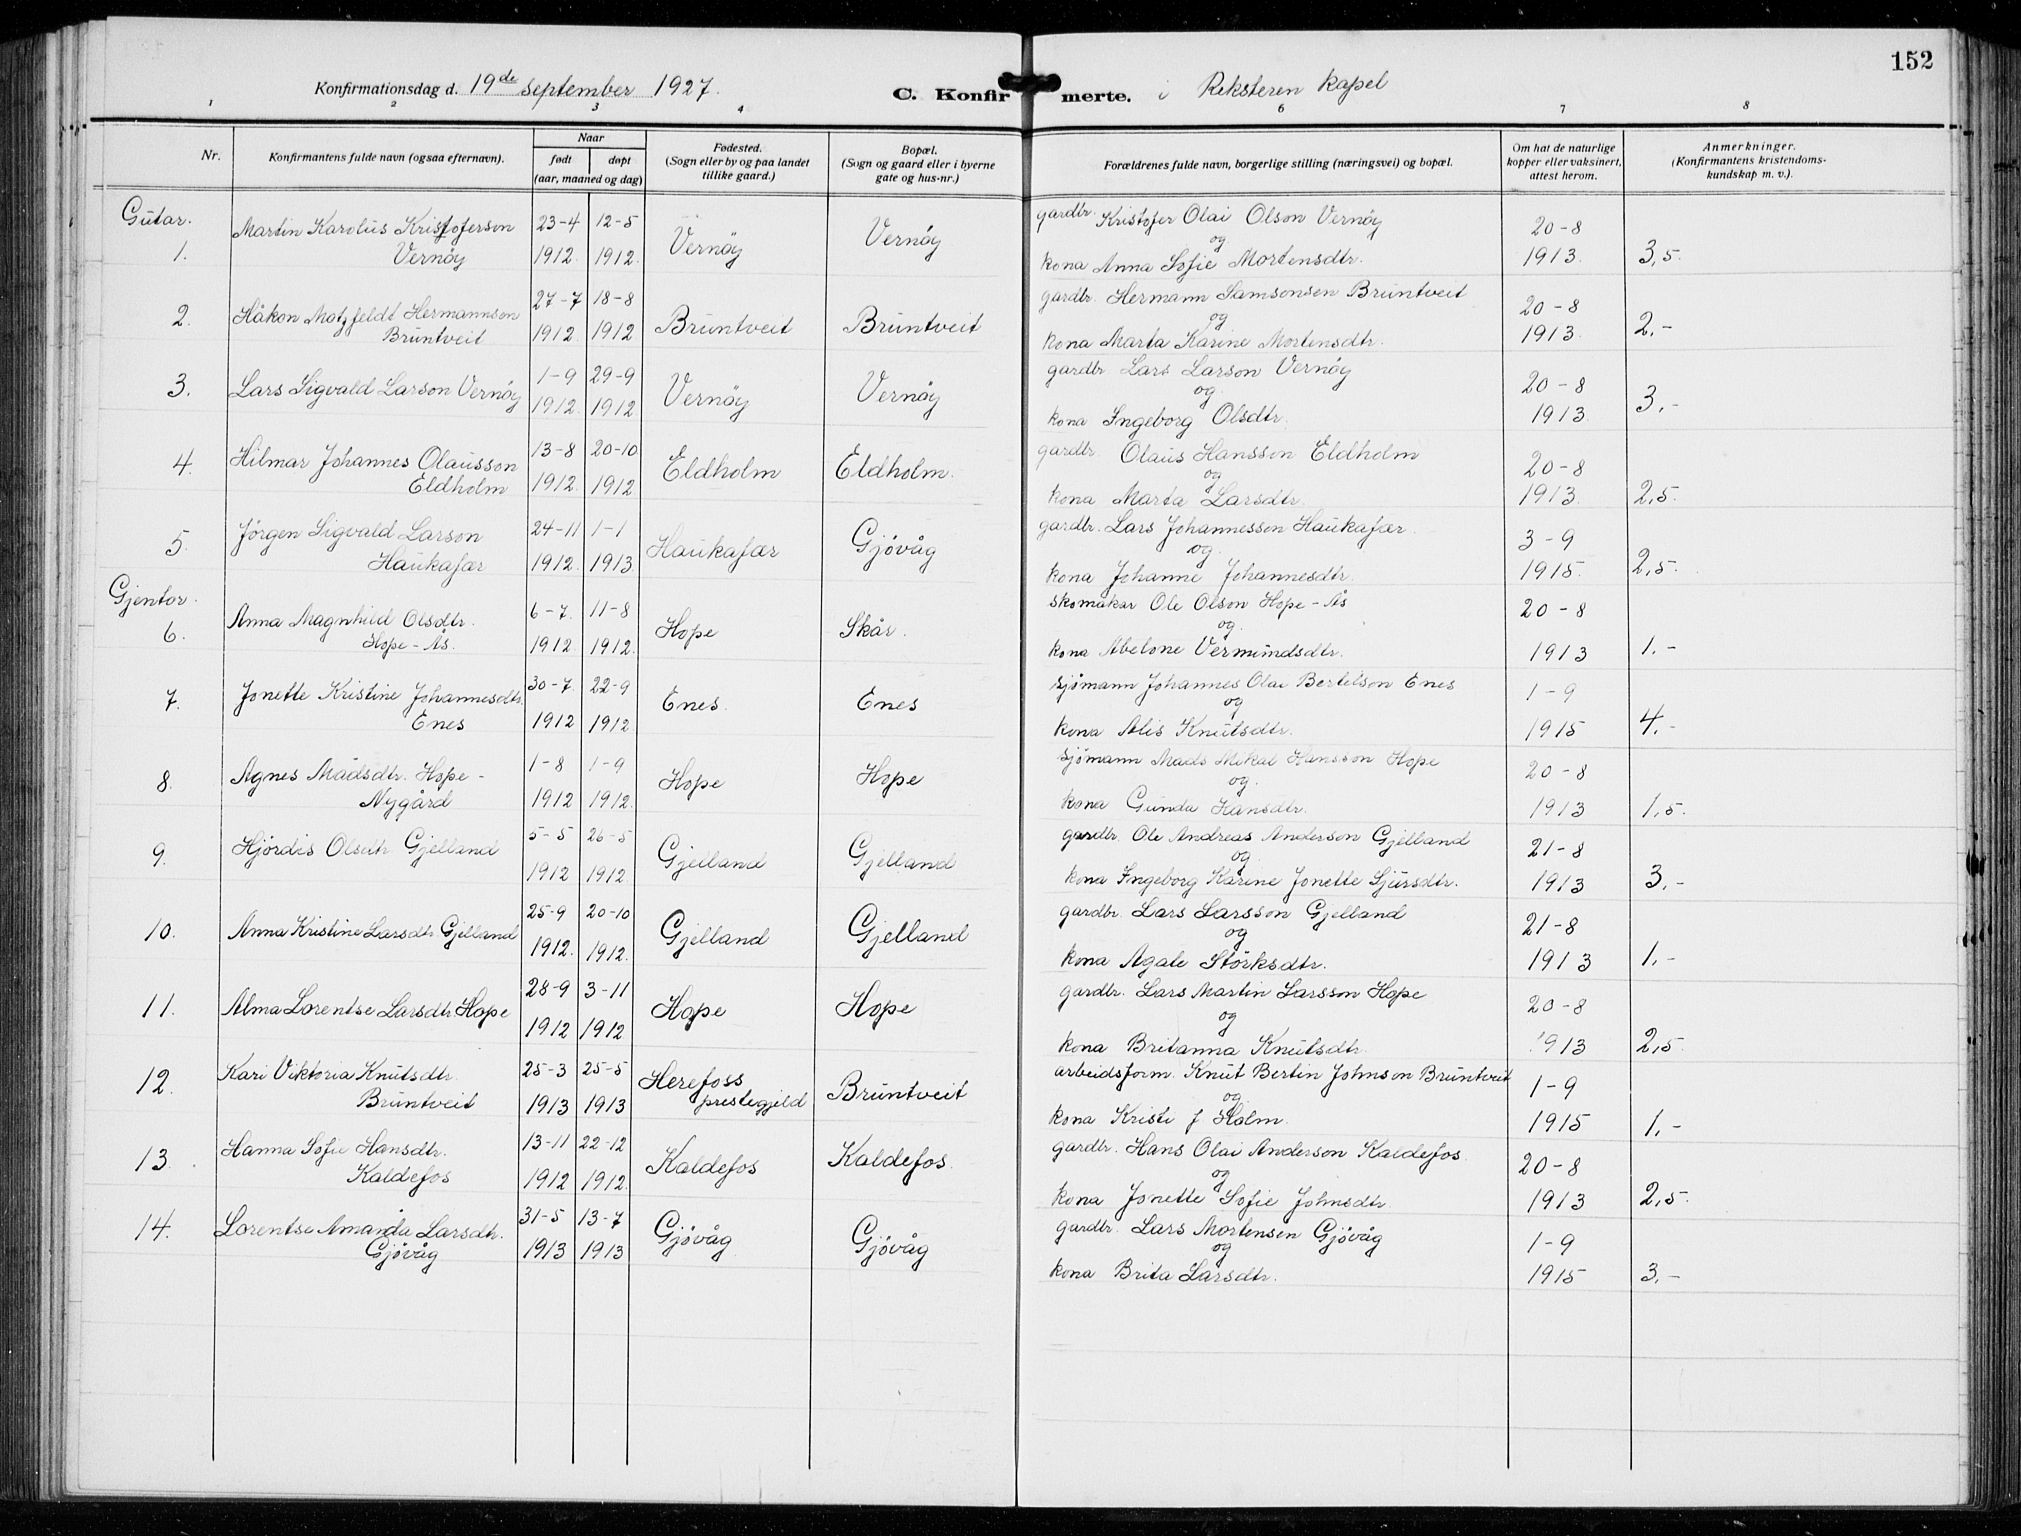 152
Konfirmationsdag d. 19de september 1927. C. Konfirmerte. i Reksteren kapel
1 2 3 4 6 7 8
Nr. Konfirmantens fulde navn (ogsaa efternavn). Naar født døpt (aar, maaned og dag) Fødested. (Sogn eller by og paa landet tillike gaard.) Bopæl. (Sogn og gaard eller i byerne gate og hus-nr.) Forældrenes fulde navn, borgerlige stilling (næringsvei) og bopæl. Om hat de naturlige kopper eller vaksinert, attest herom. Anmerkninger. (Konfirmantens kristendomskundskap m. v.).
Gutar.
1. Martin Karolus Kristoferson Vernøy 23-4 1912. 12-5 1912. Vernøy Vernøy gardbr. Kristofer Olai Olson Vernøy og kona Anna Sofie Mortensdtr. 20-8 1913. 3,5.
2. Håkon Motzfeldt Hermannson Bruntveit 27-7 1912. 18-8 1912 Bruntveit Bruntveit gardbr. Hermann Samsonsen Bruntveit og kona Marta Karine Mortensdtr. 20-8 1913. 2.-
3. Lars Sigvald Larson Vernøy 1-9 1912. 29-9 1912 Vernøy Vernøy gardbr Lars Larson Vernøy og kona Ingeborg Olsdtr. 20-8 1913. 3.-
4. Hilmar Johannes Olausson Eldholm 13-8 1912. 20-10 1912 Eldholm Eldholm. gardbr. Olaus Hansson Eldholm og kona Marta Larsdtr. 20-8 1913. 2,5.
5. Jørgen Sigvald Larson Haukafær 24-11 1912. 1-1 1913 Haukafær Gjøvåg gardbr. Lars Johannessen Haukafær. og. kona Johanne Johannesdtr. 3-9 1915. 2,5.
Gjentor.
6. Anna Magnhild Olsdtr. Hope-Ås. 6-7. 1912. 11-8 1912. Hope Skår. skomakar Ole Olson Hope-Ås og. kona Abelone Vermundsdtr. 20-8 1913 1.-
7. Jonette Kristine Johannesdtr. Enes 30-7. 1912 22-9 1912. Enes. Enes sjømann Johannes Olai Bertelson Enes og kona Alis Knutsdtr. 1-9 1915 4.-
8. Agnes Madsdtr. Hope-Nygård 1-8 1912 1-9 1912. Hope Hope sjømann Mads Mikal Hansson Hope og. kona Gunda Hansdtr. 20-8 1913 1,5.
9. Hjørdis Olsdtr Gjelland 5-5 1912 26-5 1912. Gjelland Gjelland gardbr. Ole Andreas Anderson Gjelland og. kona Ingeborg Karine Jonette Sjursdtr. 21-8 1913 3.-
10. Anna Kristine Larsdtr Gjelland 25-9 1912. 20-10 1912. Gjelland Gjelland gardbr. Lars Larsson Gjelland og kona Agate Størksdtr. 21-8 1913 1.-
11. Alma Lorentse Larsdtr. Hope 28-9 1912 3-11 1912 Hope Hope gardbr. Lars Martin Larsson Hope og kona Britanna Knutsdtr. 20-8 1913 2,5.
12. Kari Viktoria Knutsdtr. Bruntveit 25-3 1913 25-5 1913 Herefoss prestegjeld Bruntveit arbeidsform. Knut Bertin Johnson Bruntveit og. kona Kristi f Holm. 1-9 1915 1.-
13. Hanna Sofie Hansdtr. Kaldefos 13-11 1912 22-12 1912. Kaldefos Kaldefos. gardbr. Hans Olai Anderson Kaldefos. og kona Jonette Sofie Johnsdtr. 20-8 1913 2,5.
14. Lorentse Amanda Larsdtr. Gjøvåg 31-5 1913 13-7 1913 Gjøvåg Gjøvåg gardbr. Lars Mortensen Gjøvåg og kona Brita Larsdtr. 1-9 1915 3.-